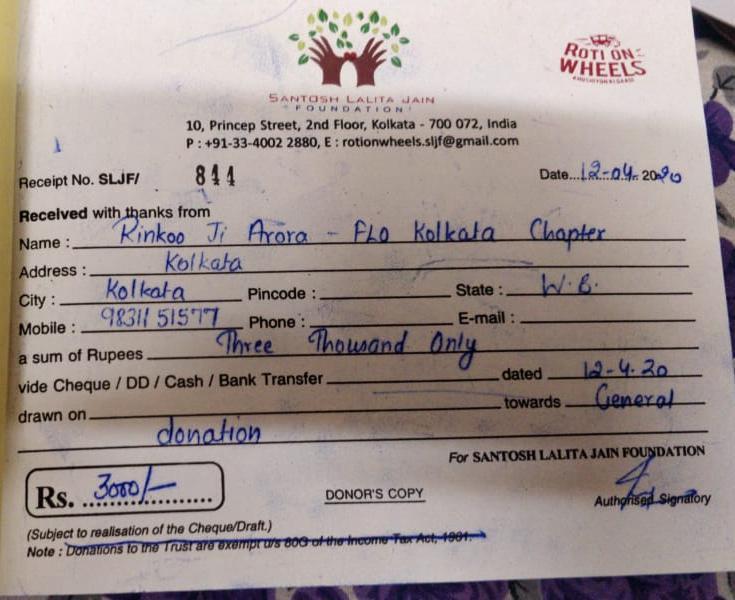 SANTOSH LALITA JAIN
FOUNDATION
ROTI ON
WHEELS
10, Princep Street, 2nd Floor, Kolkata - 700 072, India
P : +91-33-4002 2880, E : rotionwheels.sljf@gmail.com
Receipt No. SLJF/ 844 Date...12-04-2020
Received with thanks from
Name : Rinkoo Ji Arora - FLO Kolkata Chapter
Address : Kolkata
City : Kolkata Pincode : State : W.B.
Mobile : 98311 51577 Phone : E-mail :
a sum of Rupees Three Thousand Only
vide Cheque / DD / Cash / Bank Transfer dated 12-4-20
drawn on towards General
donation
For SANTOSH LALITA JAIN FOUNDATION
Rs. 3000/-
DONOR'S COPY
Authorised Signatory
(Subject to realisation of the Cheque/Draft.)
Note : Donations to the Trust are exempt u/s 80G of the Income Tax Act, 1961.